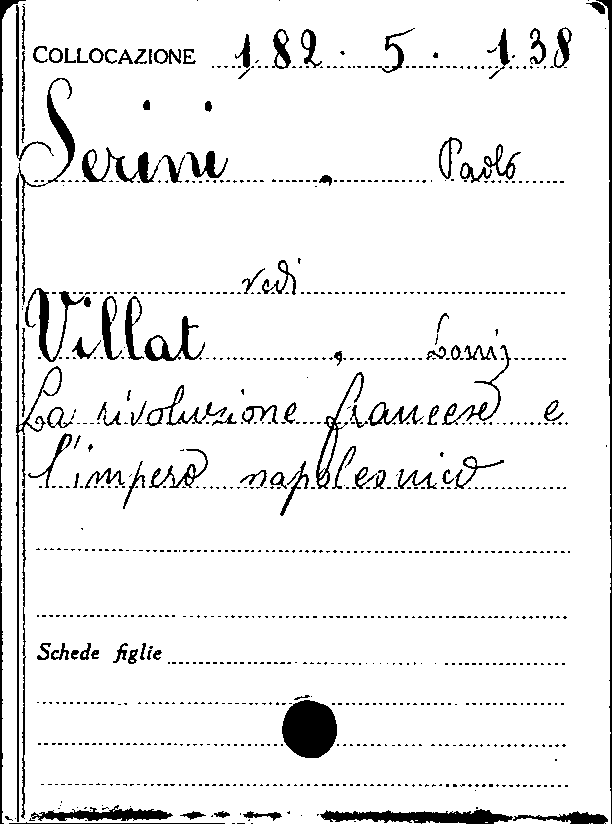 COLLOCAZIONE 182. 5. 138
Serini, Paolo
vedi
Villat, Louis
La rivoluzione francese e
l'impero napoleonico
Schede figlie